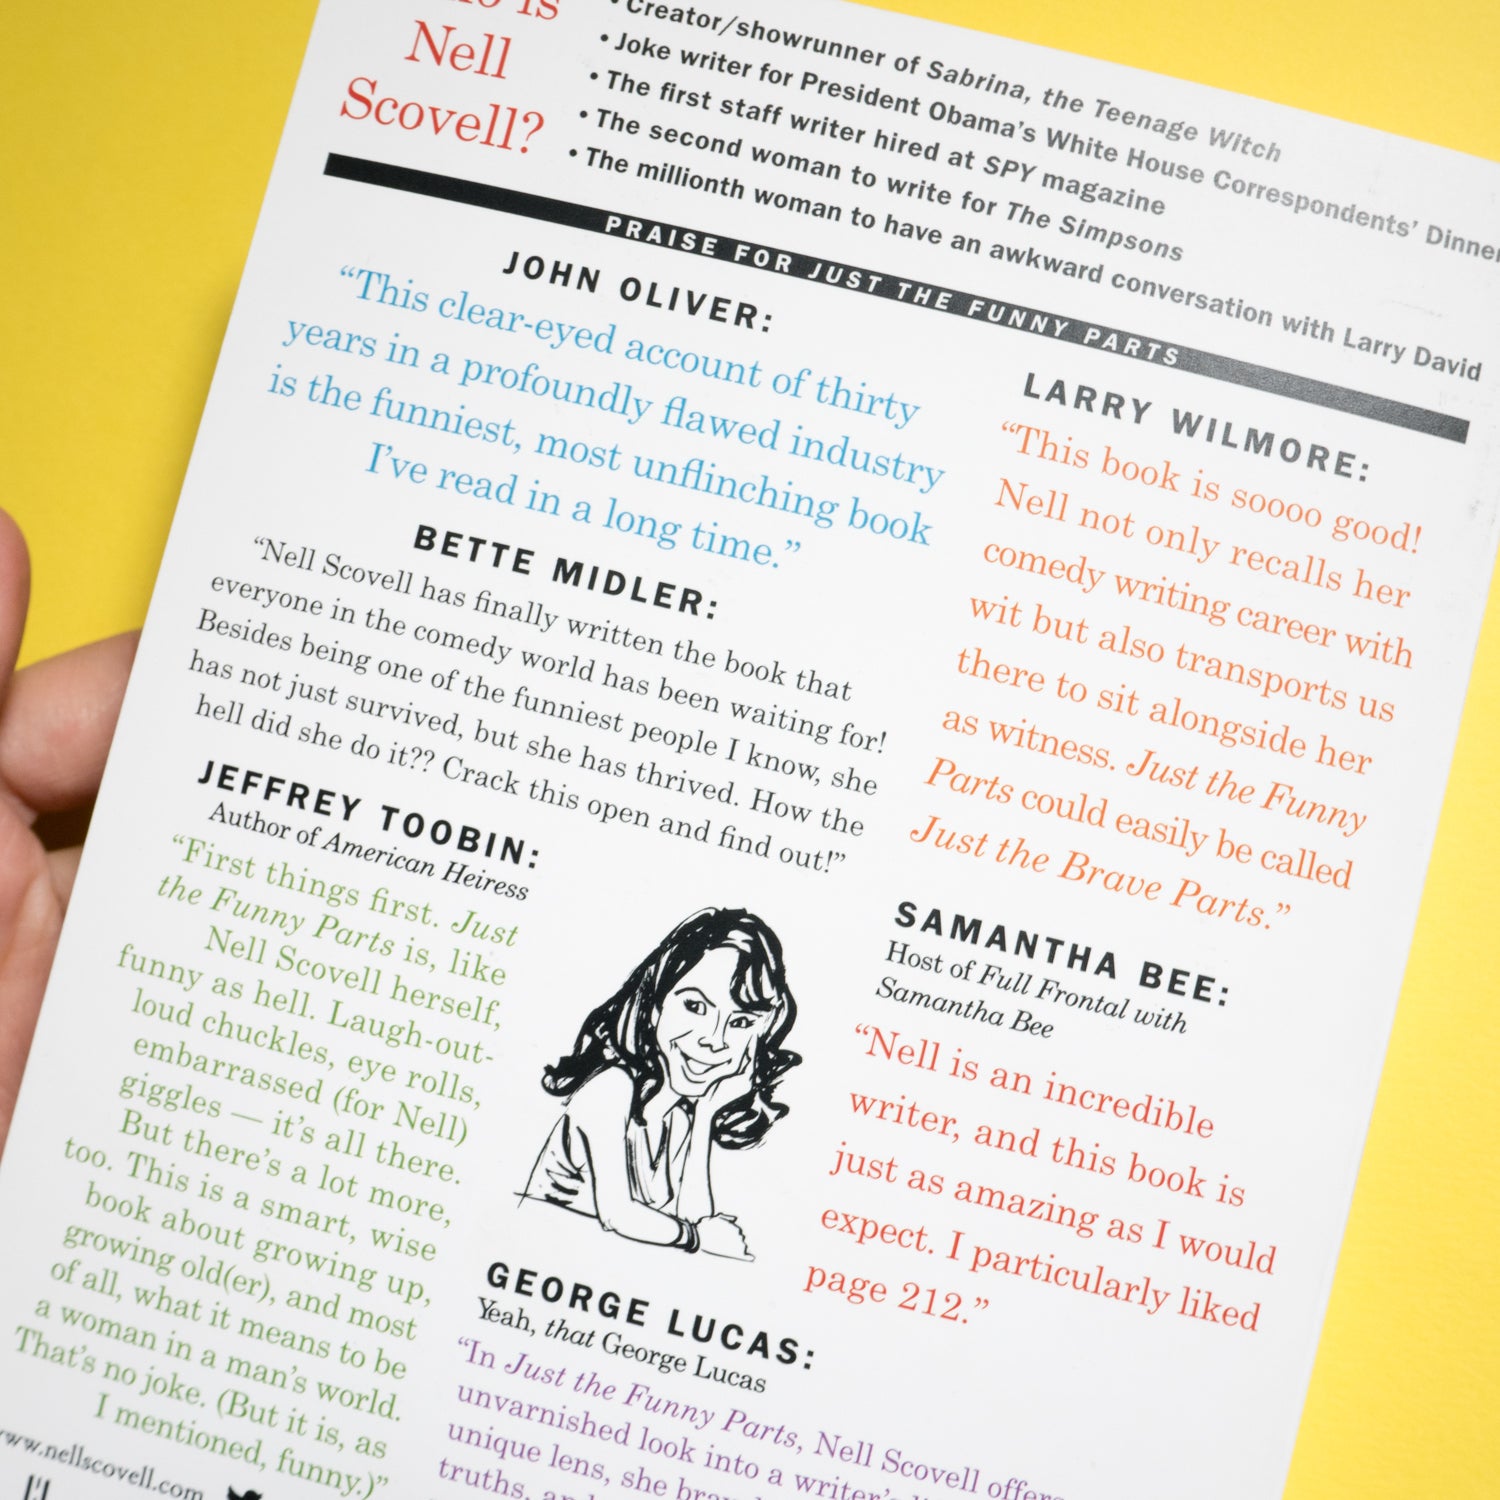 is
Nell
Scovell?
• Creator/showrunner of Sabrina, the Teenage Witch
• Joke writer for President Obama's White House Correspondents' Dinner
• The first staff writer hired at SPY magazine
• The second woman to write for The Simpsons
• The millionth woman to have an awkward conversation with Larry David
PRAISE FOR JUST THE FUNNY PARTS
JOHN OLIVER:
“This clear-eyed account of thirty
years in a profoundly flawed industry
is the funniest, most unflinching book
I've read in a long time.”
BETTE MIDLER:
“Nell Scovell has finally written the book that
everyone in the comedy world has been waiting for!
Besides being one of the funniest people I know, she
has not just survived, but she has thrived. How the
hell did she do it?? Crack this open and find out!”
JEFFREY TOOBIN:
Author of American Heiress
“First things first. Just
the Funny Parts is, like
Nell Scovell herself,
funny as hell. Laugh-out-
loud chuckles, eye rolls,
embarrassed (for Nell)
giggles — it's all there.
But there's a lot more,
too. This is a smart, wise
book about growing up,
growing old(er), and most
of all, what it means to be
a woman in a man's world.
That's no joke. (But it is, as
I mentioned, funny.)”
www.nellscovell.com
LARRY WILMORE:
“This book is soooo good!
Nell not only recalls her
comedy writing career with
wit but also transports us
there to sit alongside her
as witness. Just the Funny
Parts could easily be called
Just the Brave Parts.”
SAMANTHA BEE:
Host of Full Frontal with
Samantha Bee
“Nell is an incredible
writer, and this book is
just as amazing as I would
expect. I particularly liked
page 212.”
GEORGE LUCAS:
Yeah, that George Lucas
“In Just the Funny Parts, Nell Scovell offers
unvarnished look into a writer's
unique lens, she
truths,